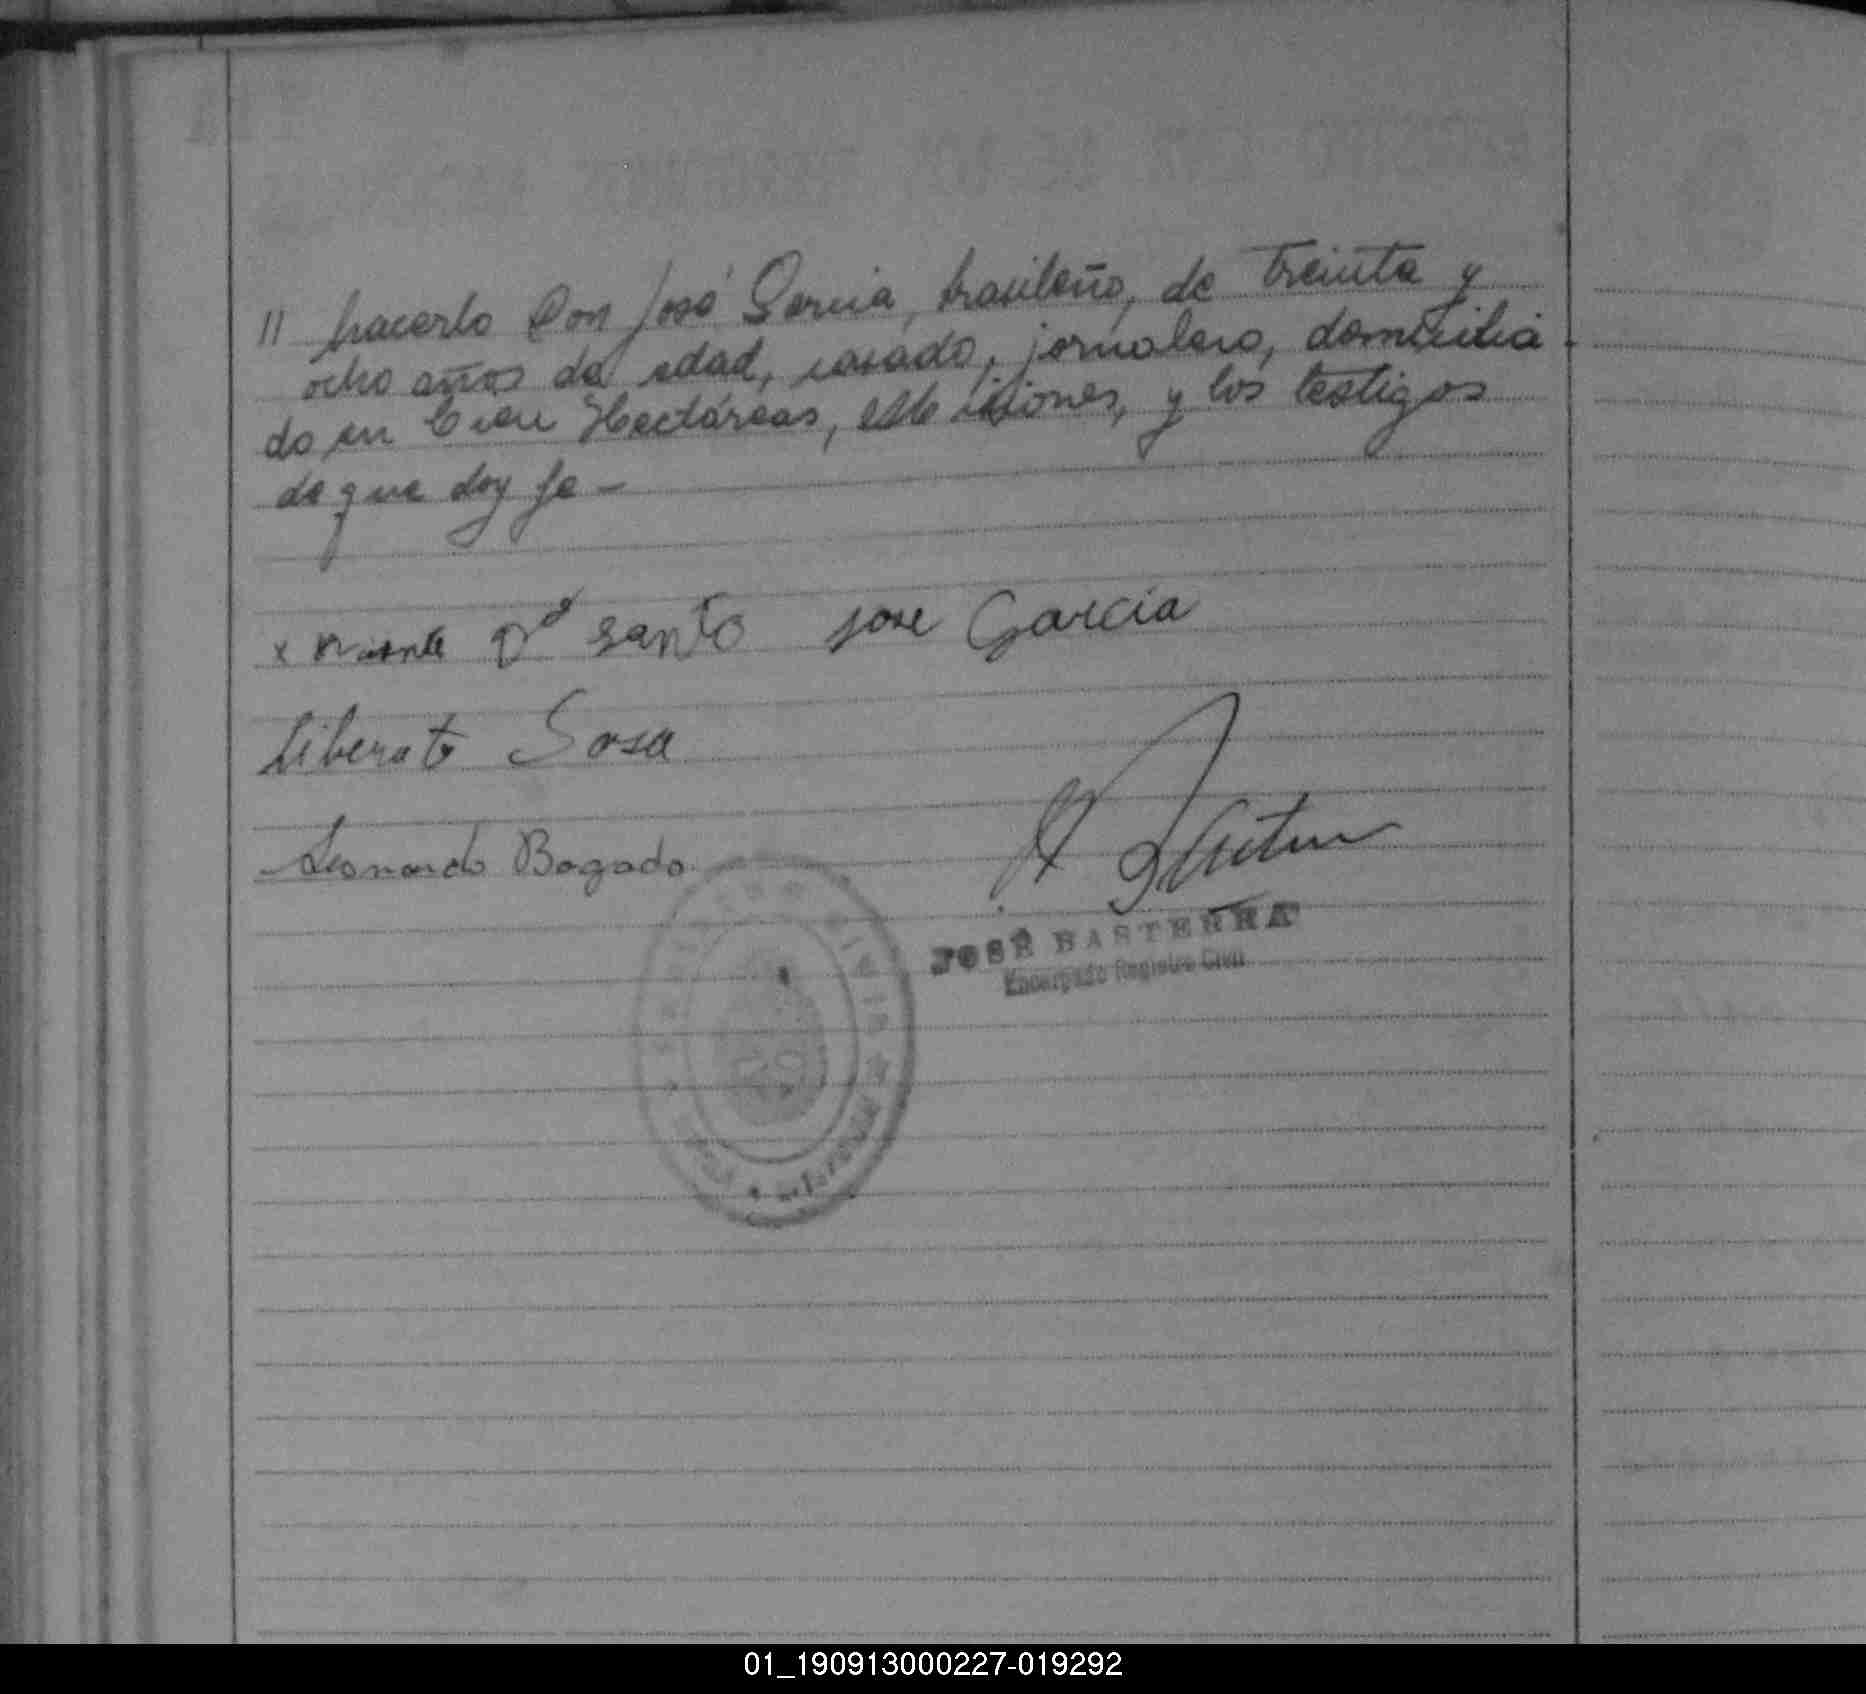 // hacerlo Don José Garcia, brasileño, de treinta y
ocho años de edad, casado, jornalero, domicilia
do en Cien Hectáreas, Misiones, y los testigos
de que doy fe -
x D° Santo Jose Garcia
Liberato Sosa
Leonardo Bogado
JOSÉ BASTERRA
Encargado Registro Civil
01_190913000227-019292